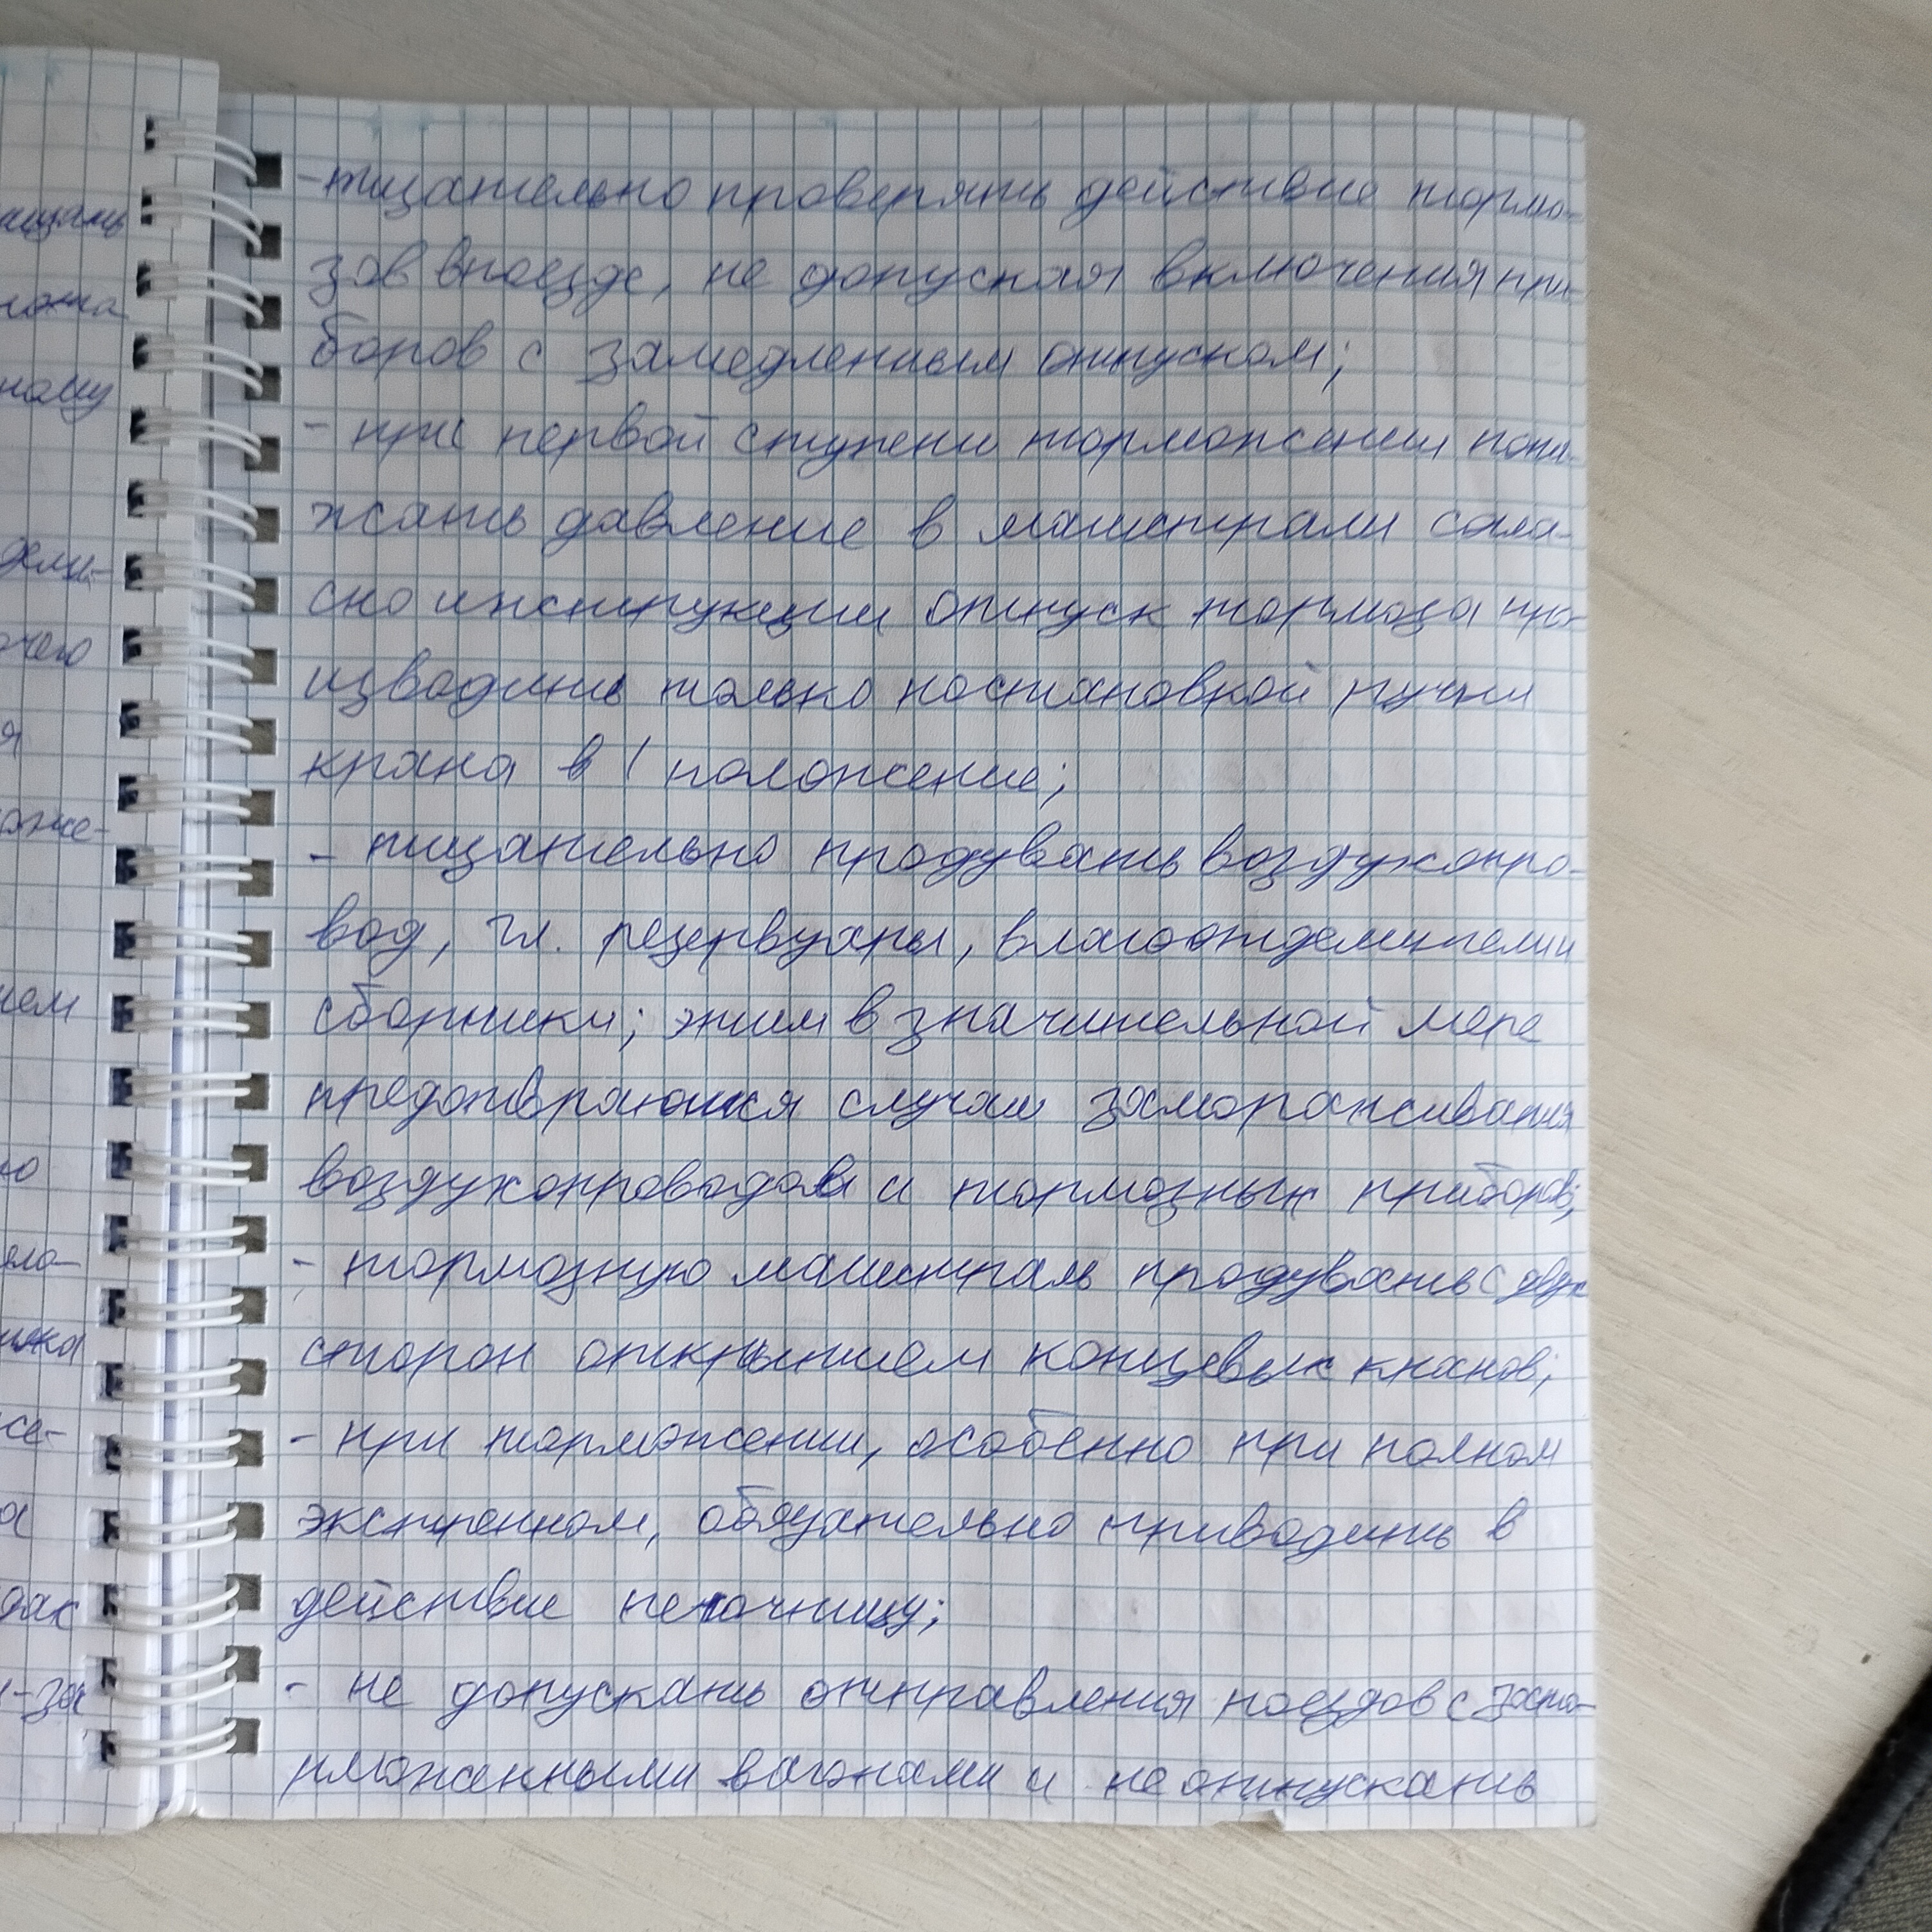 - тщательно проверять действие тормо-
зов в поезде, не допуская включения при-
боров с замедленным отпуском;
- при первой ступени торможения пони-
жать давление в магистрали согла-
сно инструкции отпуск тормоза про-
изводить только постановкой ручки
крана в I положение;
- тщательно продувать воздухопро-
вод, гл. резервуары, влагоотделители и
сборники; этим в значительной мере
предотвращаются случаи замораживания
воздухопроводов и тормозных приборов;
- тормозную магистраль продувать с двух
сторон открытием концевых кранов;
- при торможении, особенно при полном
экстренном, обязательно приводить в
действие песочницу;
- не допускать отправления поездов с зато-
рможенными вагонами и не отпускать